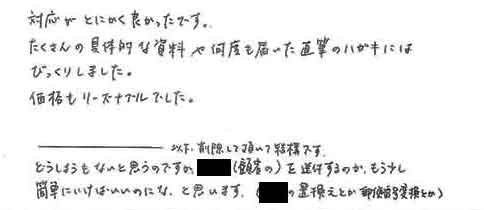 対応がとにかく良かったです。
たくさんの具体的な資料や何度も届いた直筆のハガキには
びっくりしました。
価格もリーズナブルでした。
以下、削除して頂いて結構です。
どうしようもないと思うのですが、(顧客の)を送付するのが、もう少し
簡単にいけばいいのになと思います。(の置換えとか郵便番号変換とか)